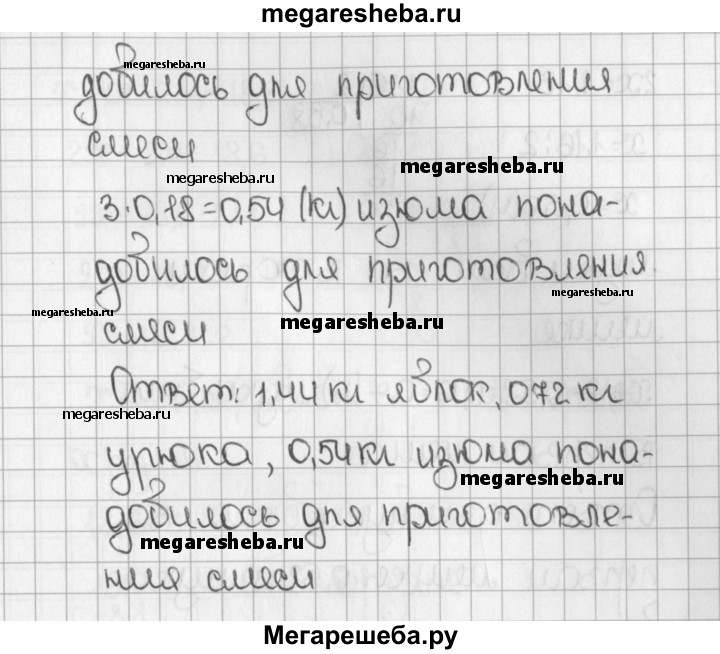 megaresheba.ru
megaresheba.ru
добилось для приготовления
смеси
megaresheba.ru
megaresheba.ru
3·0,18=0,54 (кг) изюма пона-
добилось для приготовления
megaresheba.ru
megaresheba.ru
megaresheba.ru
смеси
Ответ: 1,44 кг яблок, 0,72 кг
megaresheba.ru
урюка, 0,54 кг изюма пона-
megaresheba.ru
добилось для приготовле-
megaresheba.ru
ния смеси
Мегарешеба.ру